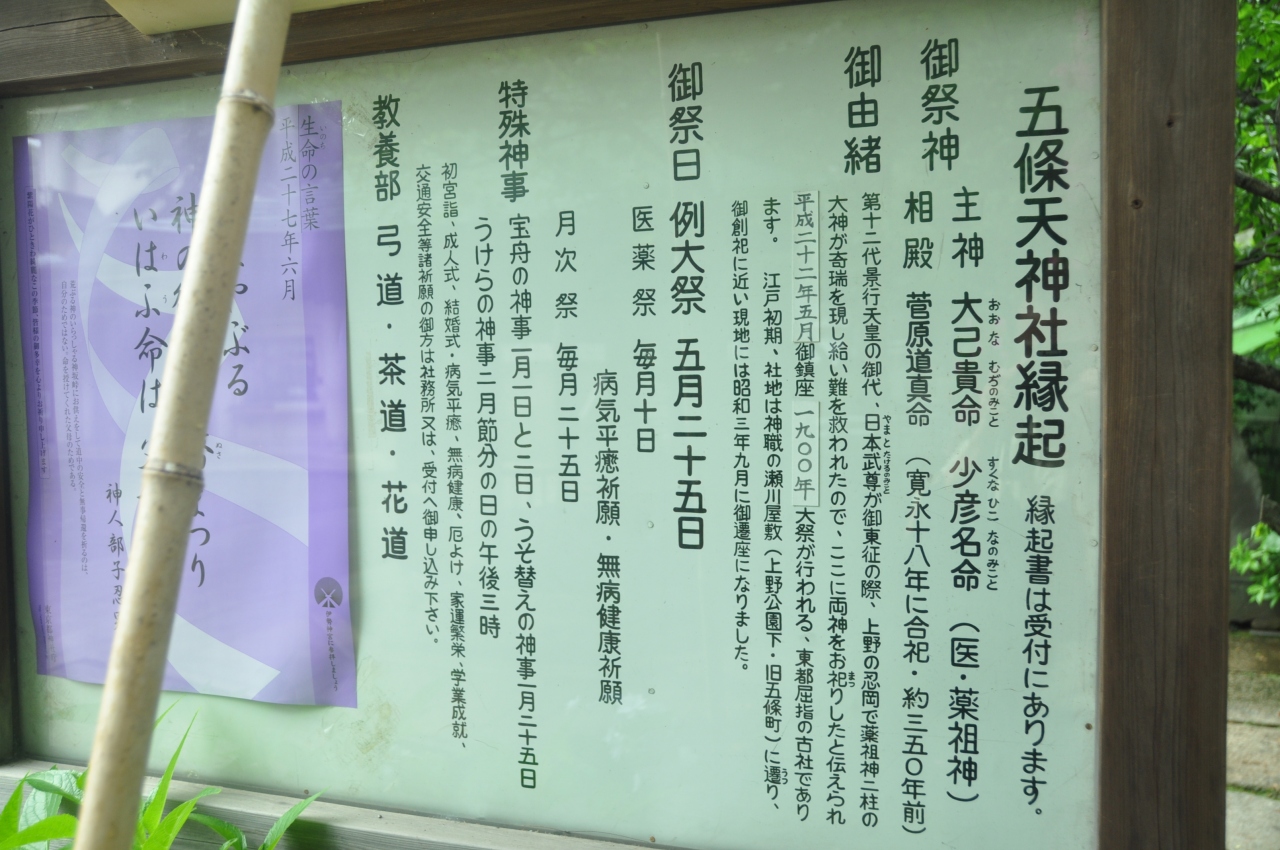 五條天神社縁起 縁起書は受付にあります。
御祭神 主神 大己貴命 少彦名命 (医・薬祖神)
おおな むぢのみこと すくな ひこ なのみこと
相殿 菅原道真命 (寛永十八年に合祀・約三五〇年前)
御由緒 第十二代景行天皇の御代、日本武尊が御東征の際、上野の忍岡で薬祖神二柱の
やまとたけるのみこと
大神が奇瑞を現し給い難を救われたので、ここに両神をお祀りしたと伝えられ
まつ
平成二十二年五月御鎮座 一九〇〇年大祭が行われる、東都屈指の古社であり
ます。 江戸初期、社地は神職の瀬川屋敷(上野公園下・旧五條町)に遷り、
うつ
御創祀に近い現地には昭和三年九月に御遷座になりました。
御祭日 例大祭 五月二十五日
医薬祭 毎月十日
病気平癒祈願・無病健康祈願
月次祭 毎月二十五日
特殊神事 宝舟の神事一月一日と二日、うそ替えの神事一月二十五日
うけらの神事二月節分の日の午後三時
初宮詣、成人式、結婚式・病気平癒、無病健康、厄よけ、家運繁栄、学業成就、
交通安全等諸祈願の御方は社務所又は、受付へ御申し込み下さい。
教養部 弓道・茶道・花道
生命の言葉
いのち
平成二十七年六月
ぶる
神の
まつり
ぬさ
いはふ命は
神人部子忍